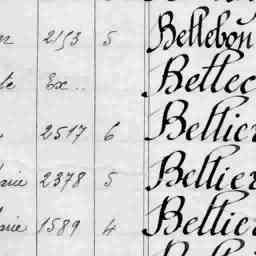 2153 5 Bellebon
Ex .. Bellec
2517 6 Bellier
2378 5 Bellier
1589 4 Bellier